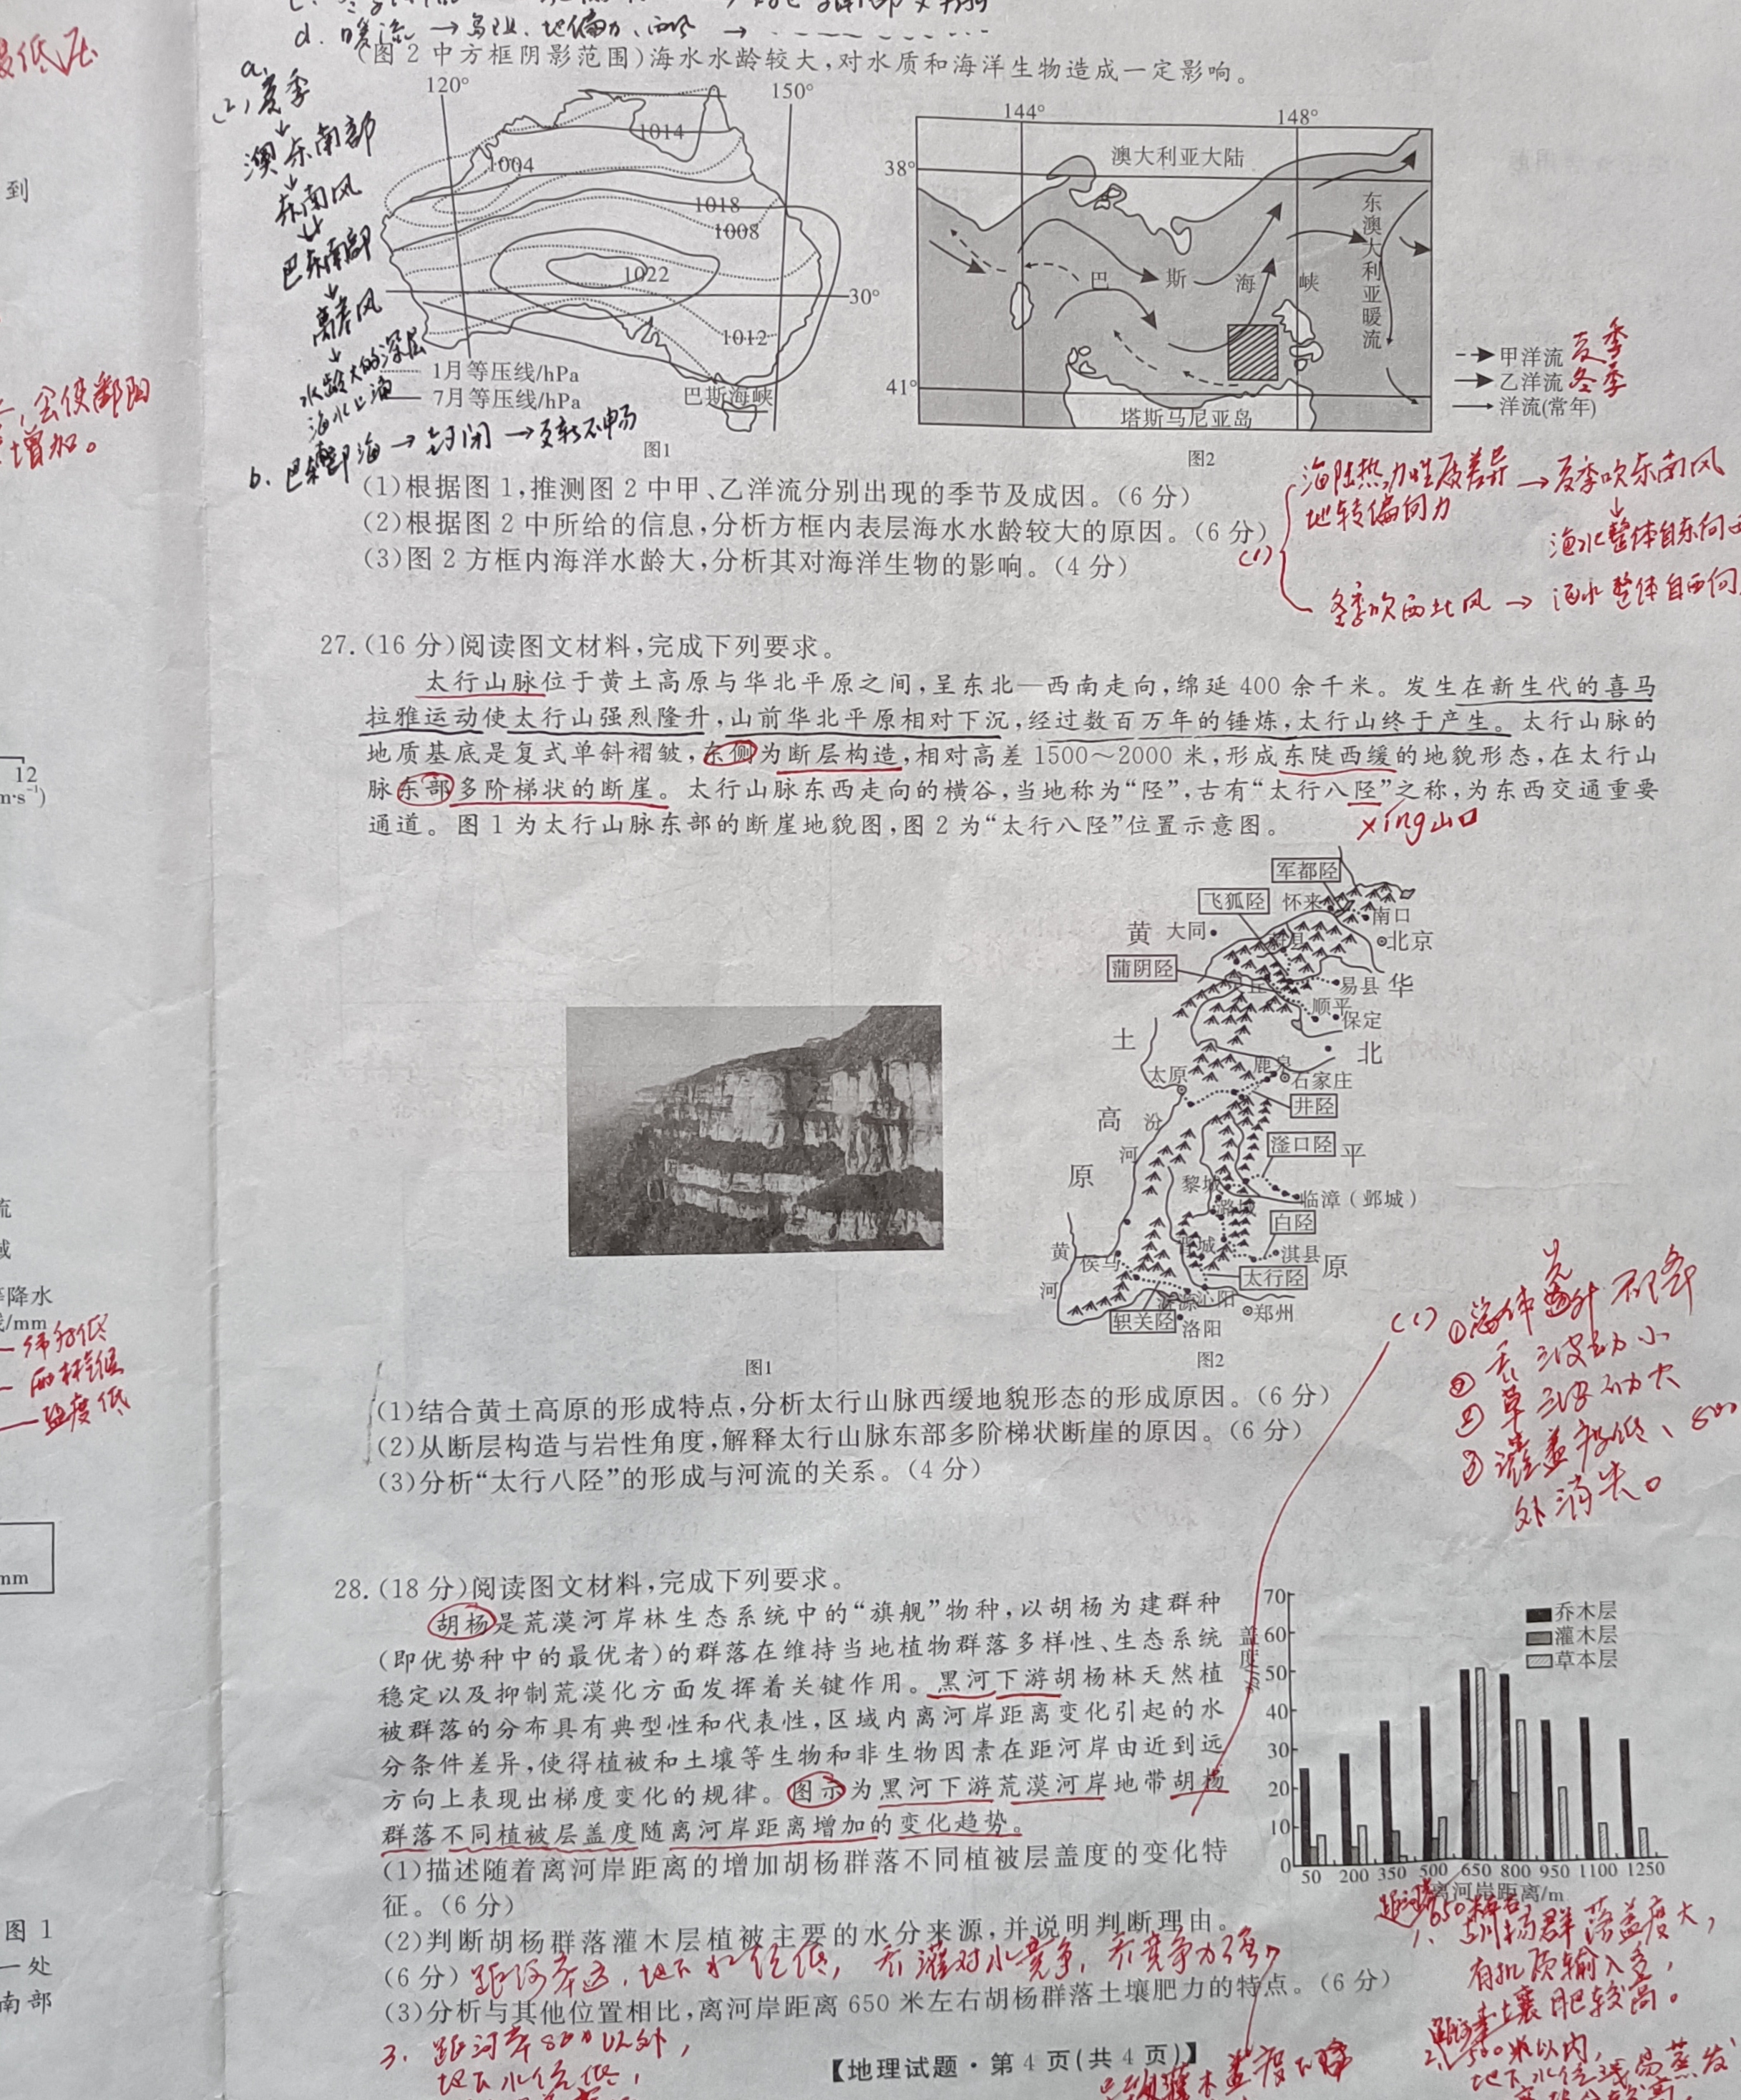 d. 暖流 → 乌亚、地偏力、西风 →
(图 2 中方框阴影范围)海水水龄较大,对水质和海洋生物造成一定影响。
最低压
a.
(2)夏季
↓
澳东南部
↓
东南风
↓
巴东南部
↓
离岸风
↓
水龄大的深层
海水上涌
b. 巴东南部海 → 封闭 → 交换不畅
到
会使鄱阳
增加。
120° 150°
1014
1004
1018
1008
1022
30°
1012
1月等压线/hPa
7月等压线/hPa
巴斯海峡
图1
144° 148°
澳大利亚大陆
38°
东澳大利亚暖流
巴 斯 海 峡
41°
塔斯马尼亚岛
甲洋流 夏季
乙洋流 冬季
洋流(常年)
图2
(1)根据图 1,推测图 2 中甲、乙洋流分别出现的季节及成因。(6 分)
(2)根据图 2 中所给的信息,分析方框内表层海水水龄较大的原因。(6 分)
(3)图 2 方框内海洋水龄大,分析其对海洋生物的影响。(4 分)
(1)
海陆热力性质差异 → 夏季吹东南风
地转偏向力
↓
海水整体自东向
冬季吹西北风 → 海水整体自西向
27.(16 分)阅读图文材料,完成下列要求。
太行山脉位于黄土高原与华北平原之间,呈东北—西南走向,绵延 400 余千米。发生在新生代的喜马
拉雅运动使太行山强烈隆升,山前华北平原相对下沉,经过数百万年的锤炼,太行山终于产生。太行山脉的
地质基底是复式单斜褶皱,东侧为断层构造,相对高差 1500～2000 米,形成东陡西缓的地貌形态,在太行山
脉东部多阶梯状的断崖。太行山脉东西走向的横谷,当地称为“陉”,古有“太行八陉”之称,为东西交通重要
通道。图 1 为太行山脉东部的断崖地貌图,图 2 为“太行八陉”位置示意图。
xíng山口
12
m·s⁻¹)
军都陉
飞狐陉 怀来 南口
黄 大同 北京
蒲阴陉
易县 华
顺平
保定
土 北
太原 鹿泉 石家庄
井陉
高 汾
滏口陉 平
河
原
黎城 临漳(邺城)
潞城
白陉
黄 侯马 晋城 淇县 原
太行陉
河 济源 沁阳 郑州
轵关陉 洛阳
图1
图2
(1)结合黄土高原的形成特点,分析太行山脉西缓地貌形态的形成原因。(6 分)
(2)从断层构造与岩性角度,解释太行山脉东部多阶梯状断崖的原因。(6 分)
(3)分析“太行八陉”的形成与河流的关系。(4 分)
流
域
降水
/mm
纬度低
盐度低
mm
(1)
①总体先升后降
②乔 波动小
草 波动大
③灌盖度低、800
外消失。
28.(18 分)阅读图文材料,完成下列要求。
胡杨是荒漠河岸林生态系统中的“旗舰”物种,以胡杨为建群种
(即优势种中的最优者)的群落在维持当地植物群落多样性、生态系统
稳定以及抑制荒漠化方面发挥着关键作用。黑河下游胡杨林天然植
被群落的分布具有典型性和代表性,区域内离河岸距离变化引起的水
分条件差异,使得植被和土壤等生物和非生物因素在距河岸由近到远
方向上表现出梯度变化的规律。图示为黑河下游荒漠河岸地带胡杨
群落不同植被层盖度随离河岸距离增加的变化趋势。
盖度/%
70
60
50
40
30
20
10
0
乔木层
灌木层
草本层
50 200 350 500 650 800 950 1100 1250
离河岸距离/m
(1)描述随着离河岸距离的增加胡杨群落不同植被层盖度的变化特
征。(6 分)
(2)判断胡杨群落灌木层植被主要的水分来源,并说明判断理由。
(6 分) 距河岸远,地下水位低,乔灌对水竞争,乔竞争力强,
(3)分析与其他位置相比,离河岸距离 650 米左右胡杨群落土壤肥力的特点。(6 分)
距河岸650米左右
1、胡杨群落盖度大,
有机质输入多,
土壤肥较高。
2、距河岸500米以内,
地下水位浅易蒸发
3、距河岸800以外,
地下水位低,
图 1
一处
南部
【地理试题·第 4 页(共 4 页)】